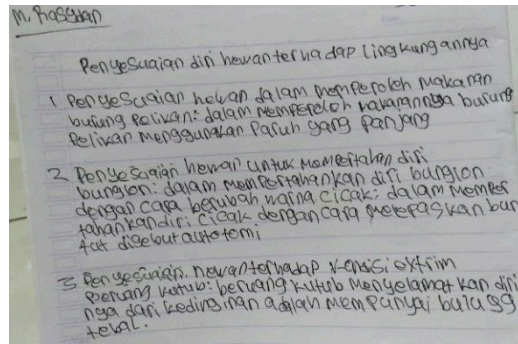 M. Rasydan
Penyesuaian diri hewan terhadap lingkungannya
1 Penyesuaian hewan dalam memperoleh makanan
burung Pelikan: dalam memperoleh makanannya burung
Pelikan menggunakan Paruh yang panjang
2 Penyesuaian hewan untuk mempertahan diri
bunglon: dalam mempertahankan diri bunglon
dengan cara berubah warna cicak: dalam memper
tahankan diri cicak dengan cara melepaskan bun
tut disebut autotomi
3 Penyesuaian. hewan terhadap kondisi extrim
beruang kutub: beruang kutub Menyelamatkan diri
nya dari kedinginan adalah mempunyai bulu yg
tebal.